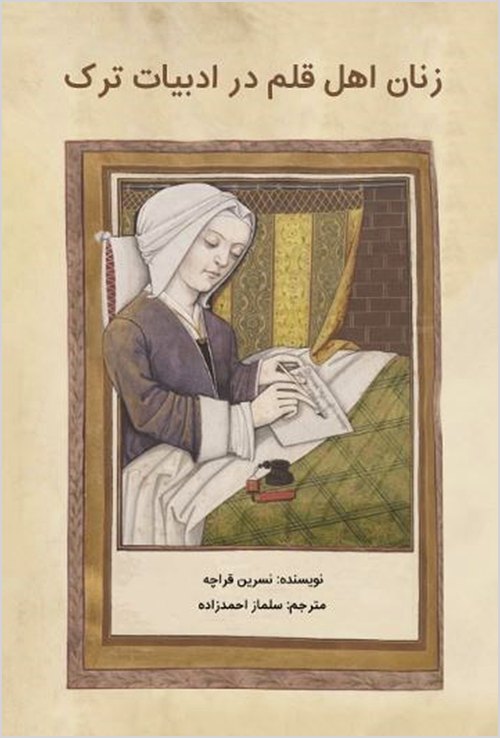 زنان اهل قلم در ادبیات ترک
نویسنده: نسرین قراچه
مترجم: سلماز احمدزاده